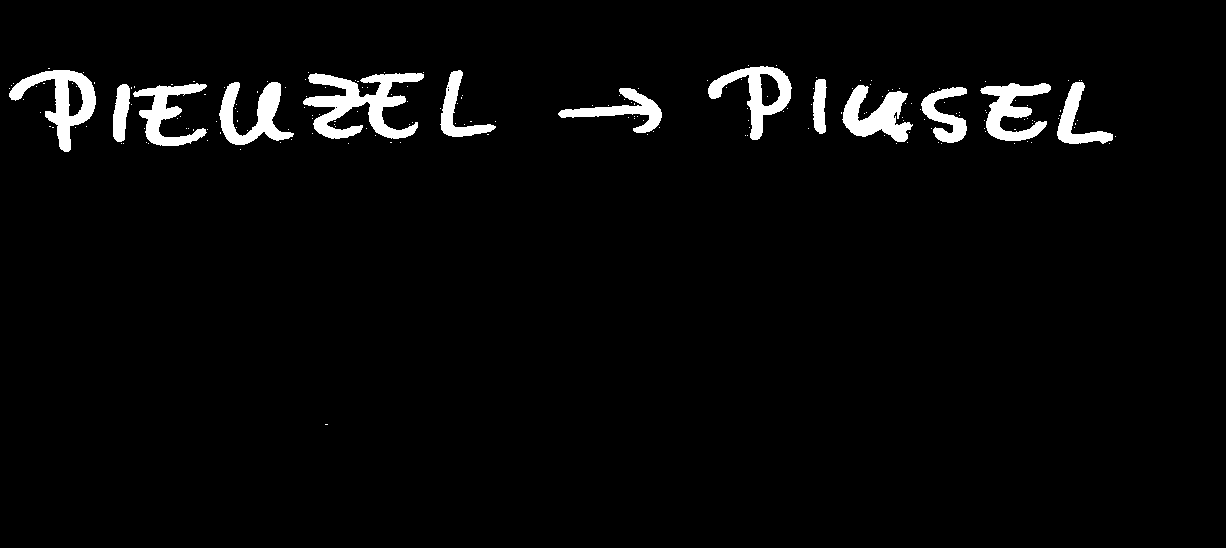 PIENZEL → PINSEL